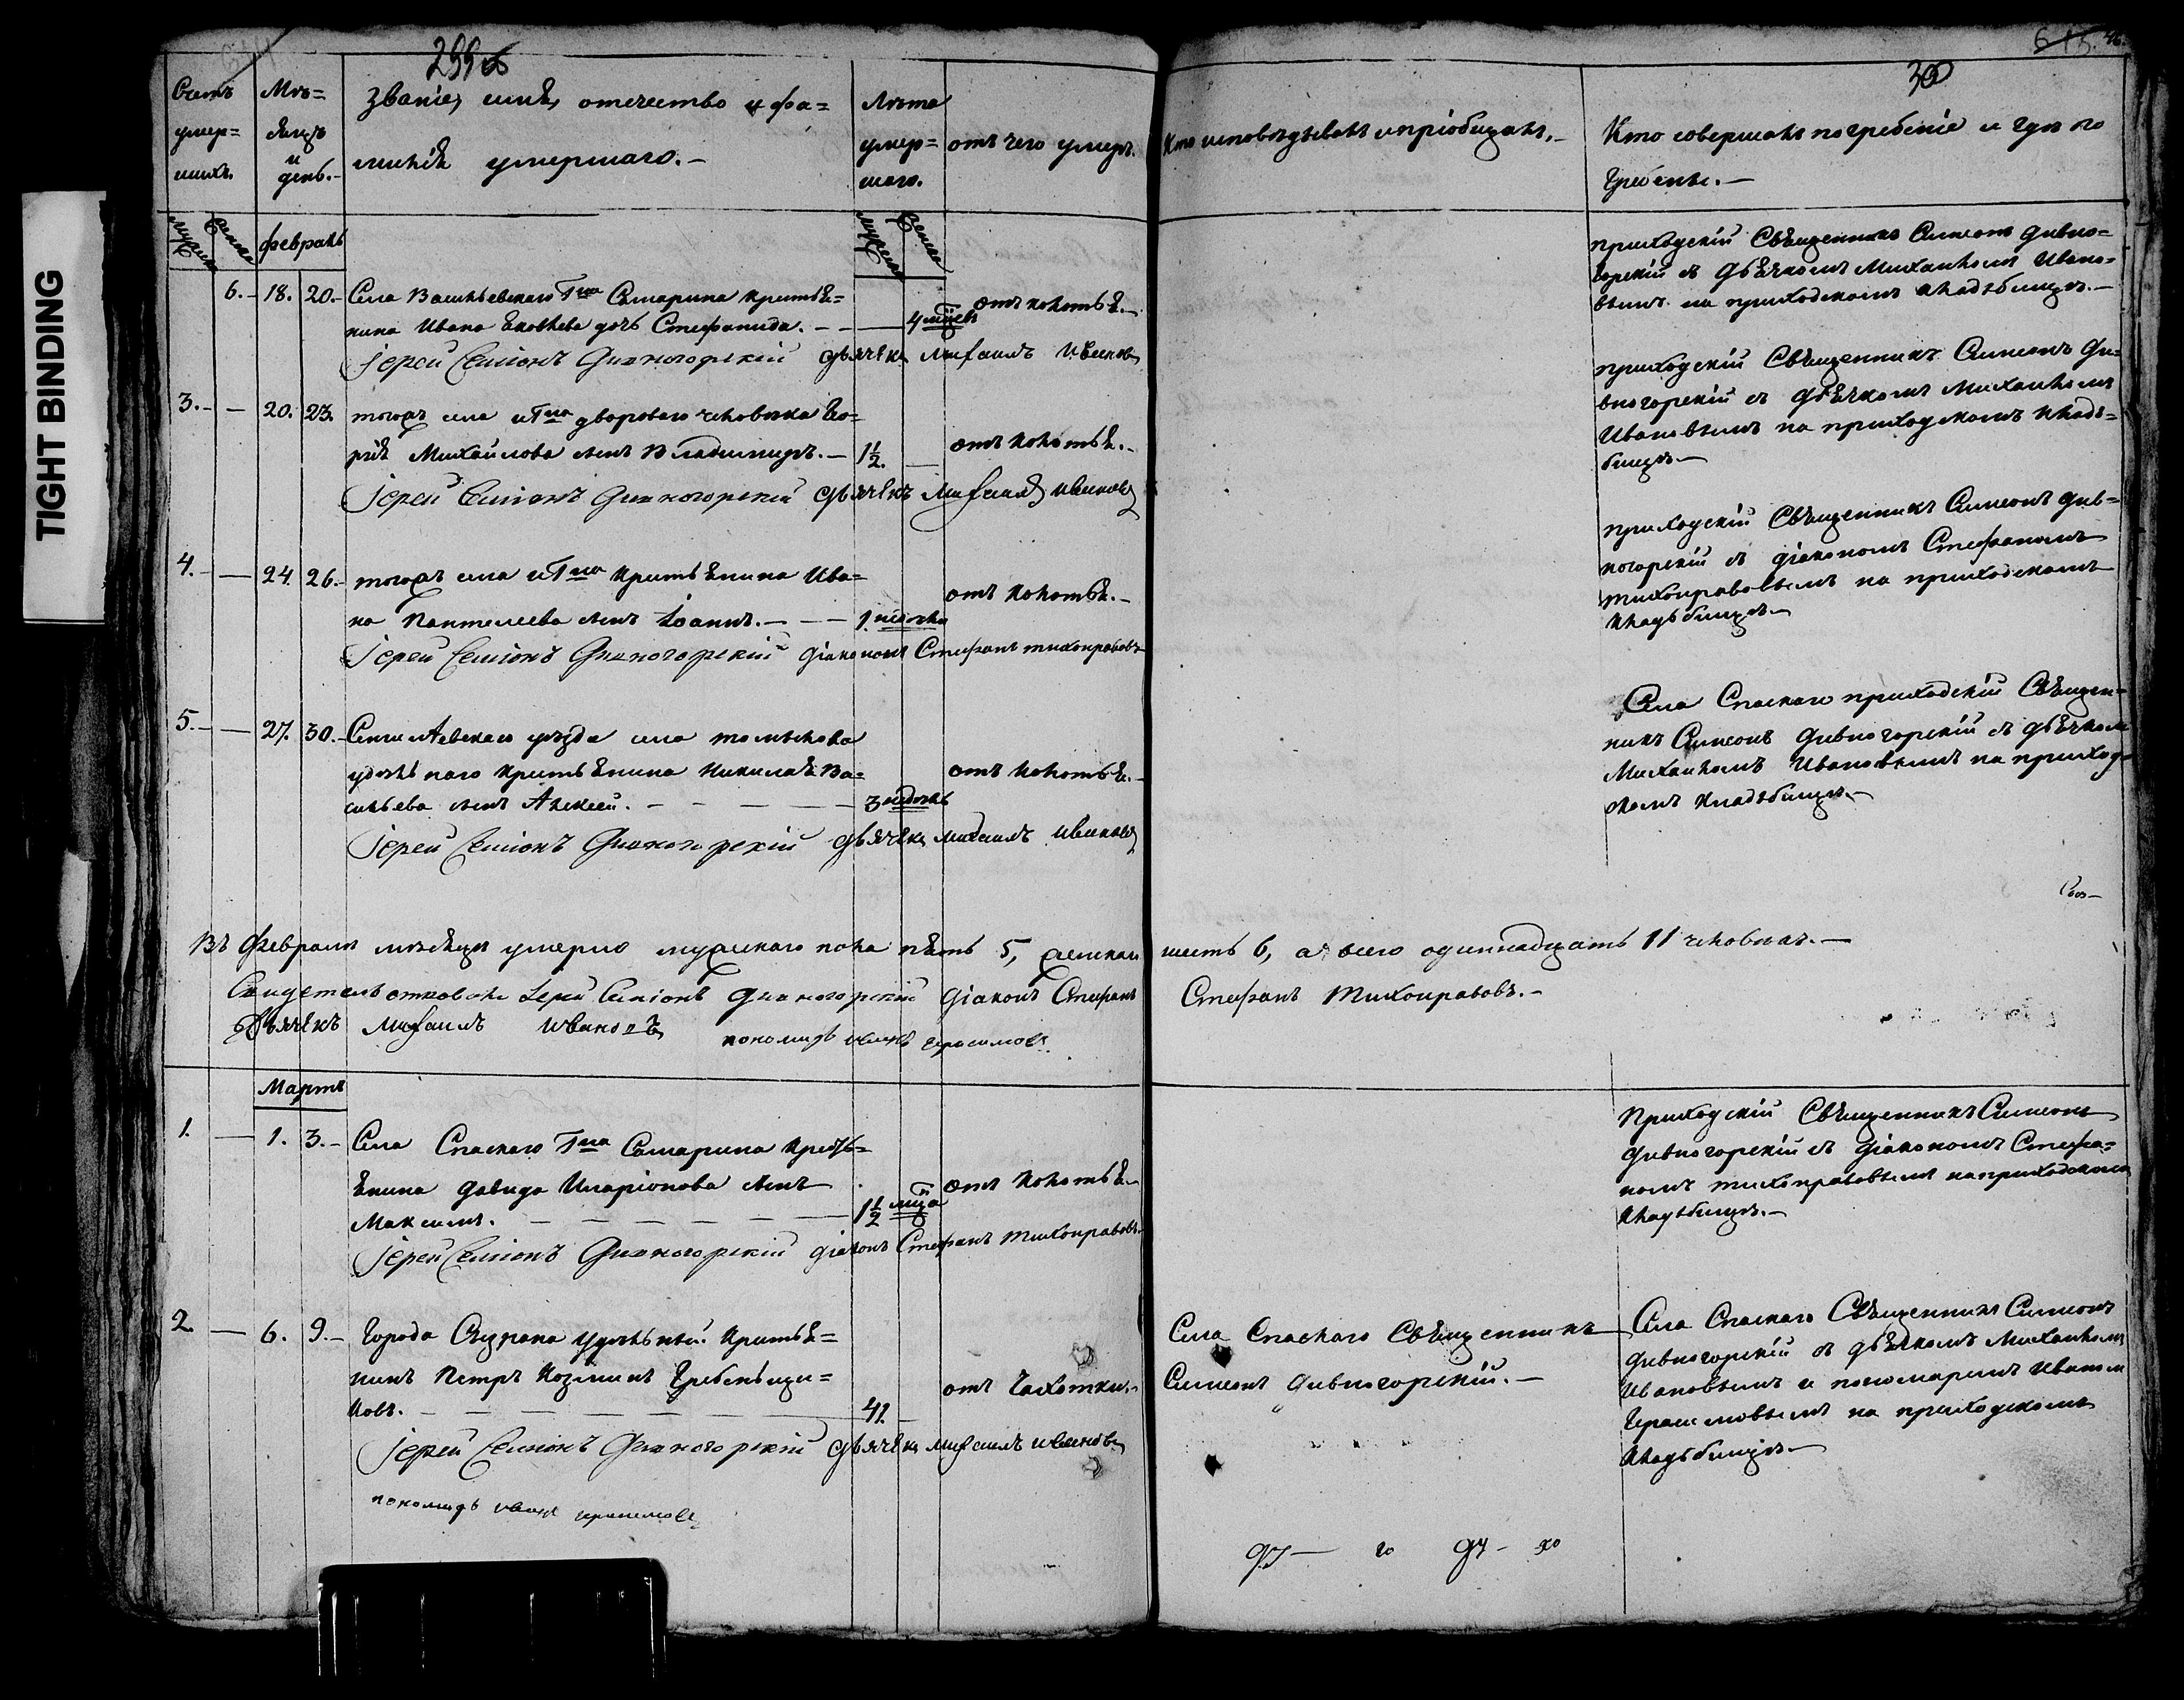 TIGHT BINDING
299 об
300
Счетъ умер=шихъ.
Мѣ=сяцъ и день.
Званіе, имя, отечество и фа=
милія умершаго.
Лѣта умер=шаго.
отъ чего умеръ.
Кто исповѣдывалъ и пріобщалъ.
Кто совершалъ погребеніе и гдѣ по
гребены.
мужеска женска
февраль
мужеска женска
6. 18. 20. Села Васильевскаго Гна Самарина крестья=
нина Ивана Яковлева дочь Стефанида. 4 мцевъ отъ колотья.
Іерей Симіонъ Дивногорскій дьячекъ Михаилъ Ивановъ
приходскій Священникъ Симеонъ Дивно=
горскій съ дьячкомъ Михаиломъ Ивано=
вымъ на приходскомъ кладбищѣ.
3. 20. 23. тогожъ села и Гна двороваго человѣка Ео=
рія Михайлова сынъ Владимиръ. 1½. отъ колотья.
Іерей Симіонъ Дивногорскій дьячекъ Михаилъ Ивановъ
приходскій Священникъ Симеонъ Ди=
вногорскій съ дьячкомъ Михаиломъ
Ивановымъ на приходскомъ клад=
бищѣ.
4. 24. 26. тогожъ села и Гна крестьянина Ива=
на Пантелеева сынъ Іоаннъ. 1. недѣли отъ колотья.
Іерей Симіонъ Дивногорскій діаконъ Стефанъ Тихонравовъ
приходскій Священникъ Симеонъ Див=
ногорскій съ діакономъ Стефаномъ
Тихонравовымъ на приходскомъ
кладбищѣ.
5. 27. 30. Сенгилѣевскаго уѣзда села
удѣльнаго крестьянина Николая Ва=
сильева сынъ Алексей. 3 недѣль отъ колотья.
Іерей Симіонъ Дивногорскій дьячекъ Михаилъ Ивановъ
Села Спаскаго приходскій Священ=
никъ Симеонъ Дивногорскій съ дьячкомъ
Михаиломъ Ивановымъ на приход=
скомъ кладбищѣ.
Въ февралѣ мѣсяцѣ умерло мужескаго пола пять 5, женскаго шесть 6, а всего одиннадцать 11 человѣкъ.
Свидетельствовали Іерей Симіонъ Дивногорскій Діаконъ Стефанъ Стефанъ Тихонравовъ.
Дьячекъ Михаилъ Ивановъ пономарь Иванъ Герасимовъ
Мартъ
1. 1. 3. Села Спаскаго Гна Самарина кресть=
янина Давида Иларіонова сынъ
Максимъ. 1½ мца отъ колотья.
Іерей Симіонъ Дивногорскій діаконъ Стефанъ Тихонравовъ.
Приходскій Священникъ Симеонъ
Дивногорскій съ діакономъ Стефа=
номъ Тихонравовымъ на приходскомъ
кладбищѣ.
2. 6. 9. Города Сызрана удѣльный крестья=
нинъ Петръ Козминъ Гребеньщи=
ковъ. 41. отъ чахотки.
Іерей Симіонъ Дивногорскій дьячекъ Михаилъ Ивановъ
пономарь Иванъ Герасимовъ
Села Спаскаго Священникъ
Симеонъ Дивногорскій.
Села Спаскаго Священникъ Симеонъ
Дивногорскій съ дьячкомъ Михаиломъ
Ивановымъ и пономаремъ Иваномъ
Герасимовымъ на приходскомъ
кладбищѣ.